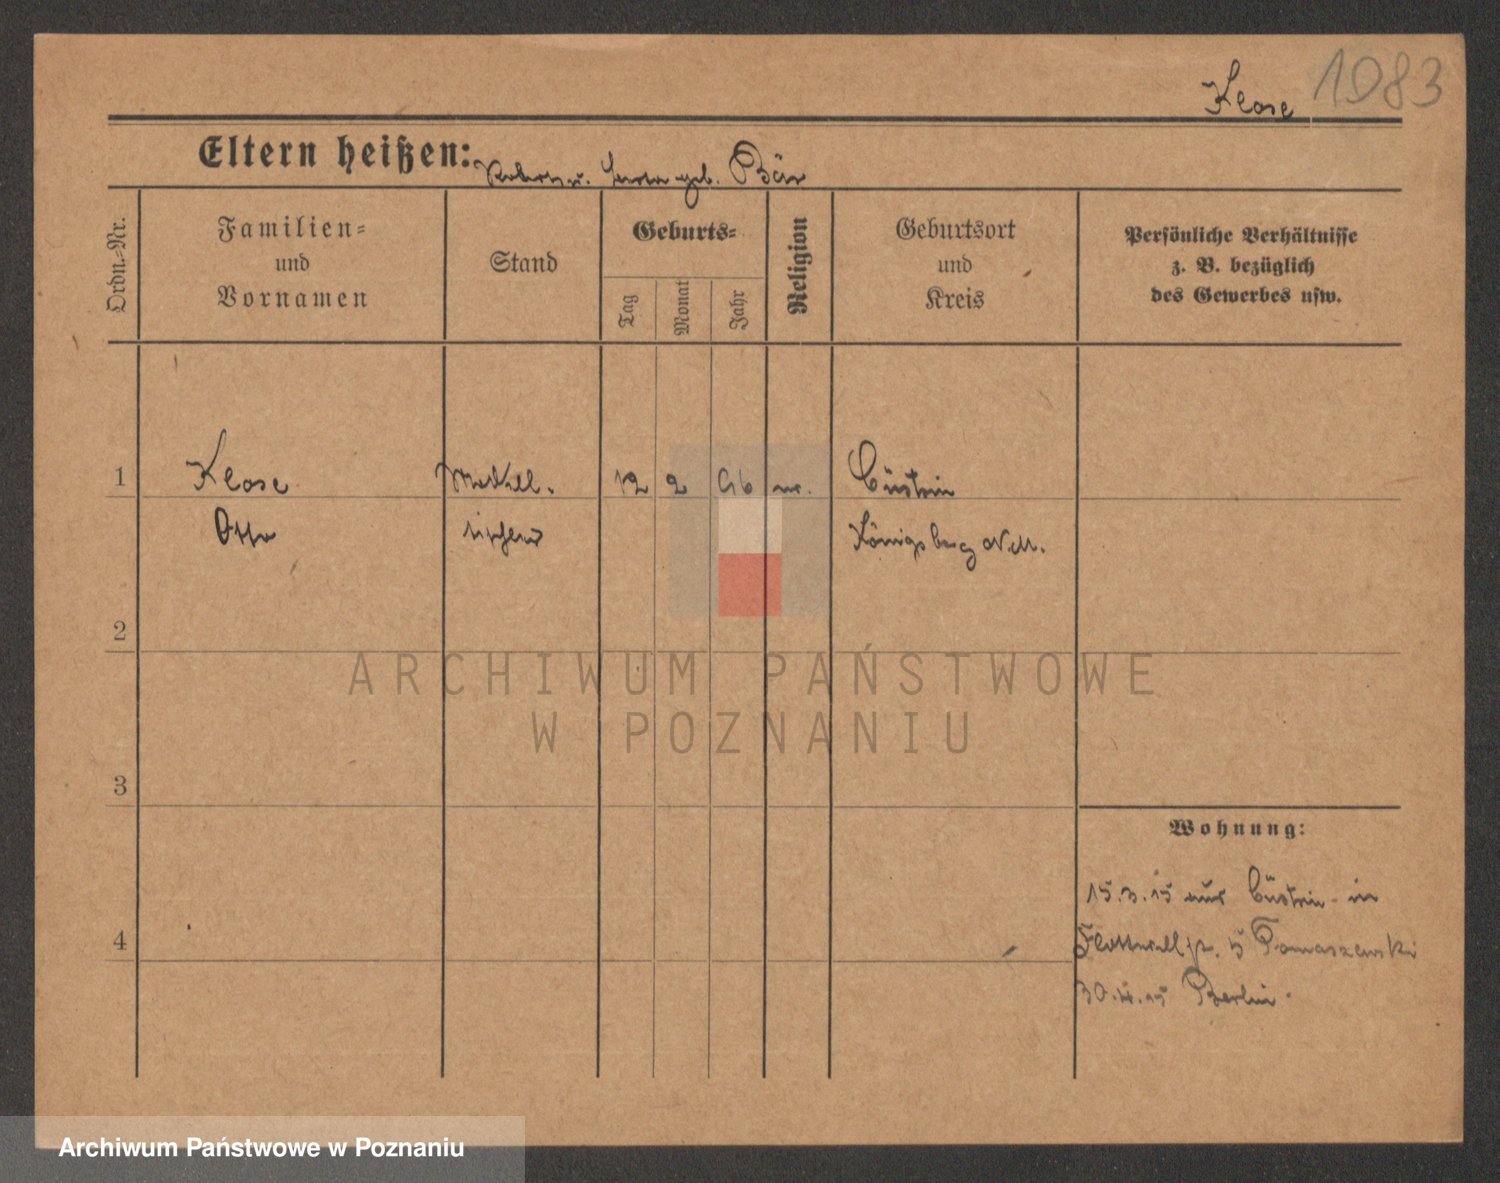 Klose 1083
Eltern heißen: Robert u. geb. Bär
Ordn.-Nr.
Familien-
und
Vornamen
Stand
Geburts-
Tag
Monat
Jahr
Religion
Geburtsort
und
Kreis
Persönliche Verhältnisse
z. B. bezüglich
des Gewerbes usw.
1 Klose 12 2 96 Cüstrin
Otto Königsberg N.M.
2
ARCHIWUM PAŃSTWOWE
W POZNANIU
3
Wohnung:
15.3.15 aus Cüstrin in
4 Flottwellstr. 5 Tomaszewski
30.4.15 Berlin
Archiwum Państwowe w Poznaniu